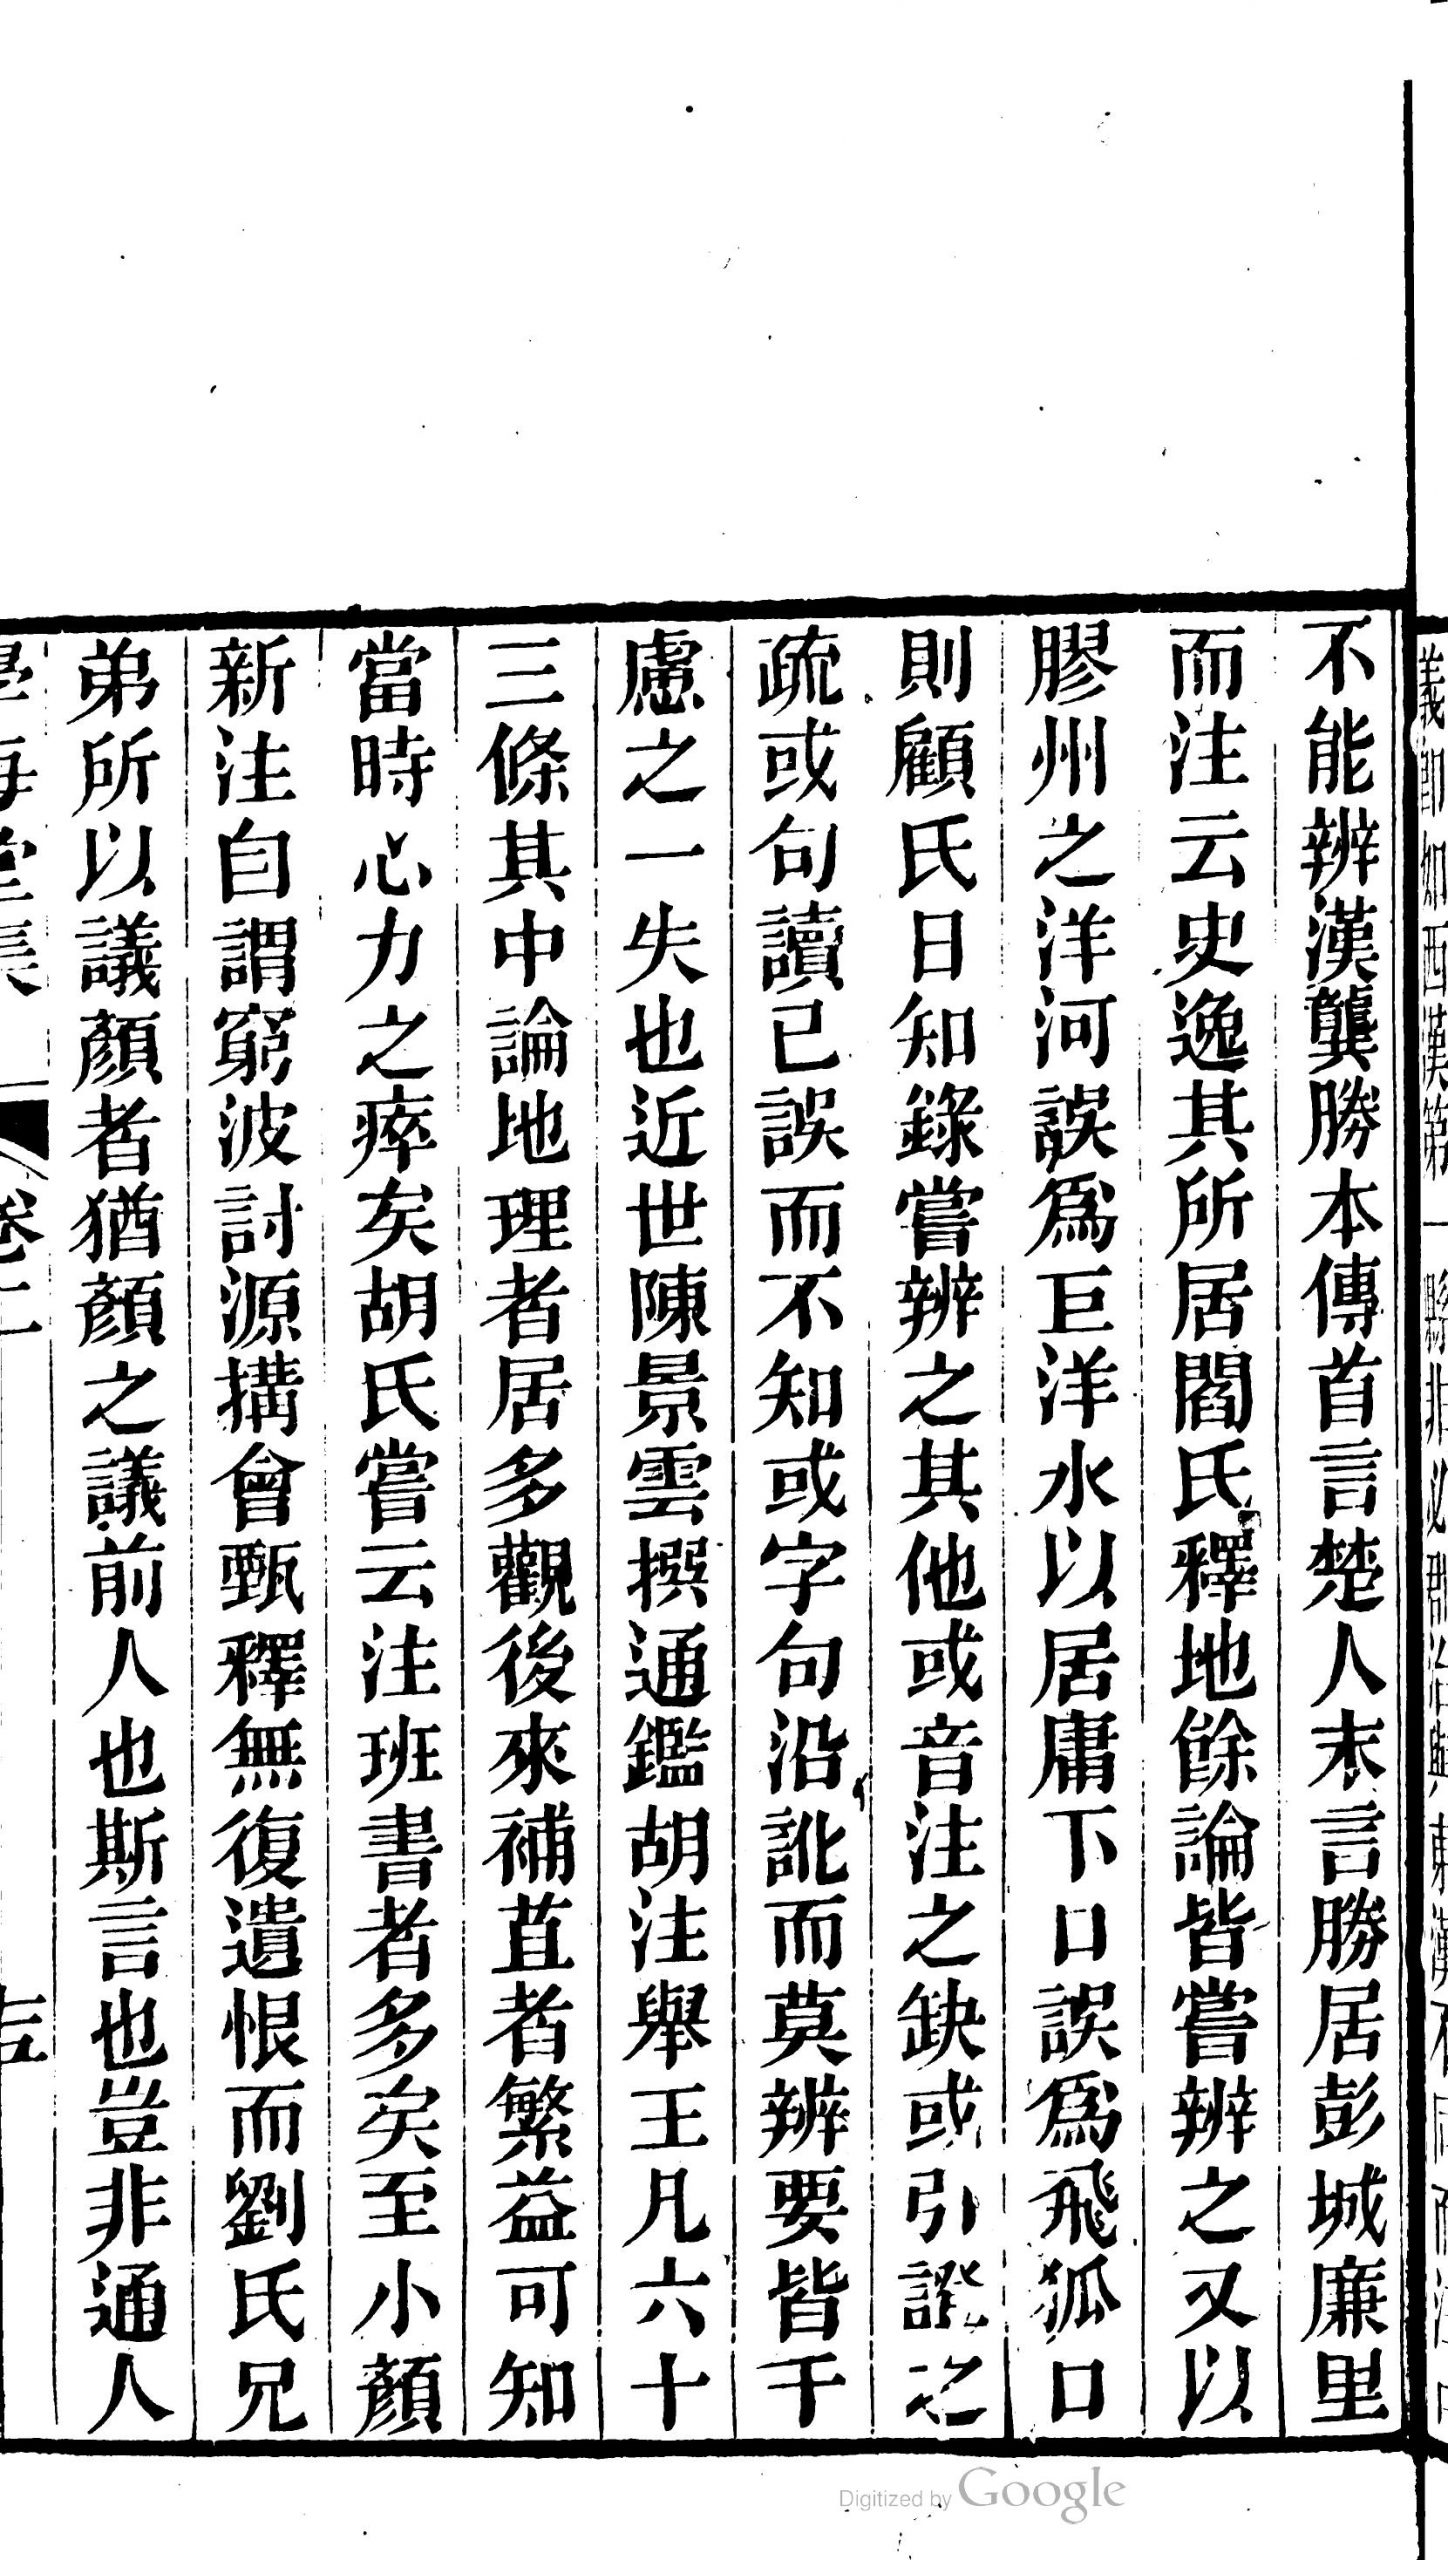 不能辨漢龔勝本傳首言楚人末言勝居彭城廉里
而注云史逸其所居閻氏釋地餘論皆嘗辨之又以
膠州之洋河誤爲巨洋水以居庸下口誤爲飛狐口
則顧氏日知錄嘗辨之其他或音注之缺或引證之
疏或句讀已誤而不知或字句沿訛而莫辨要皆千
慮之一失也近世陳景雲撰通鑑胡注舉王凡六十
三條其中論地理者居多觀後來補苴者繁益可知
當時心力之瘁矣胡氏嘗云注班書者多矣至小顏
新注自謂窮波討源搆會甄釋無復遺恨而劉氏兄
弟所以議顏者猶顏之議前人也斯言也豈非通人
學海堂集
卷二
Digitized by Google